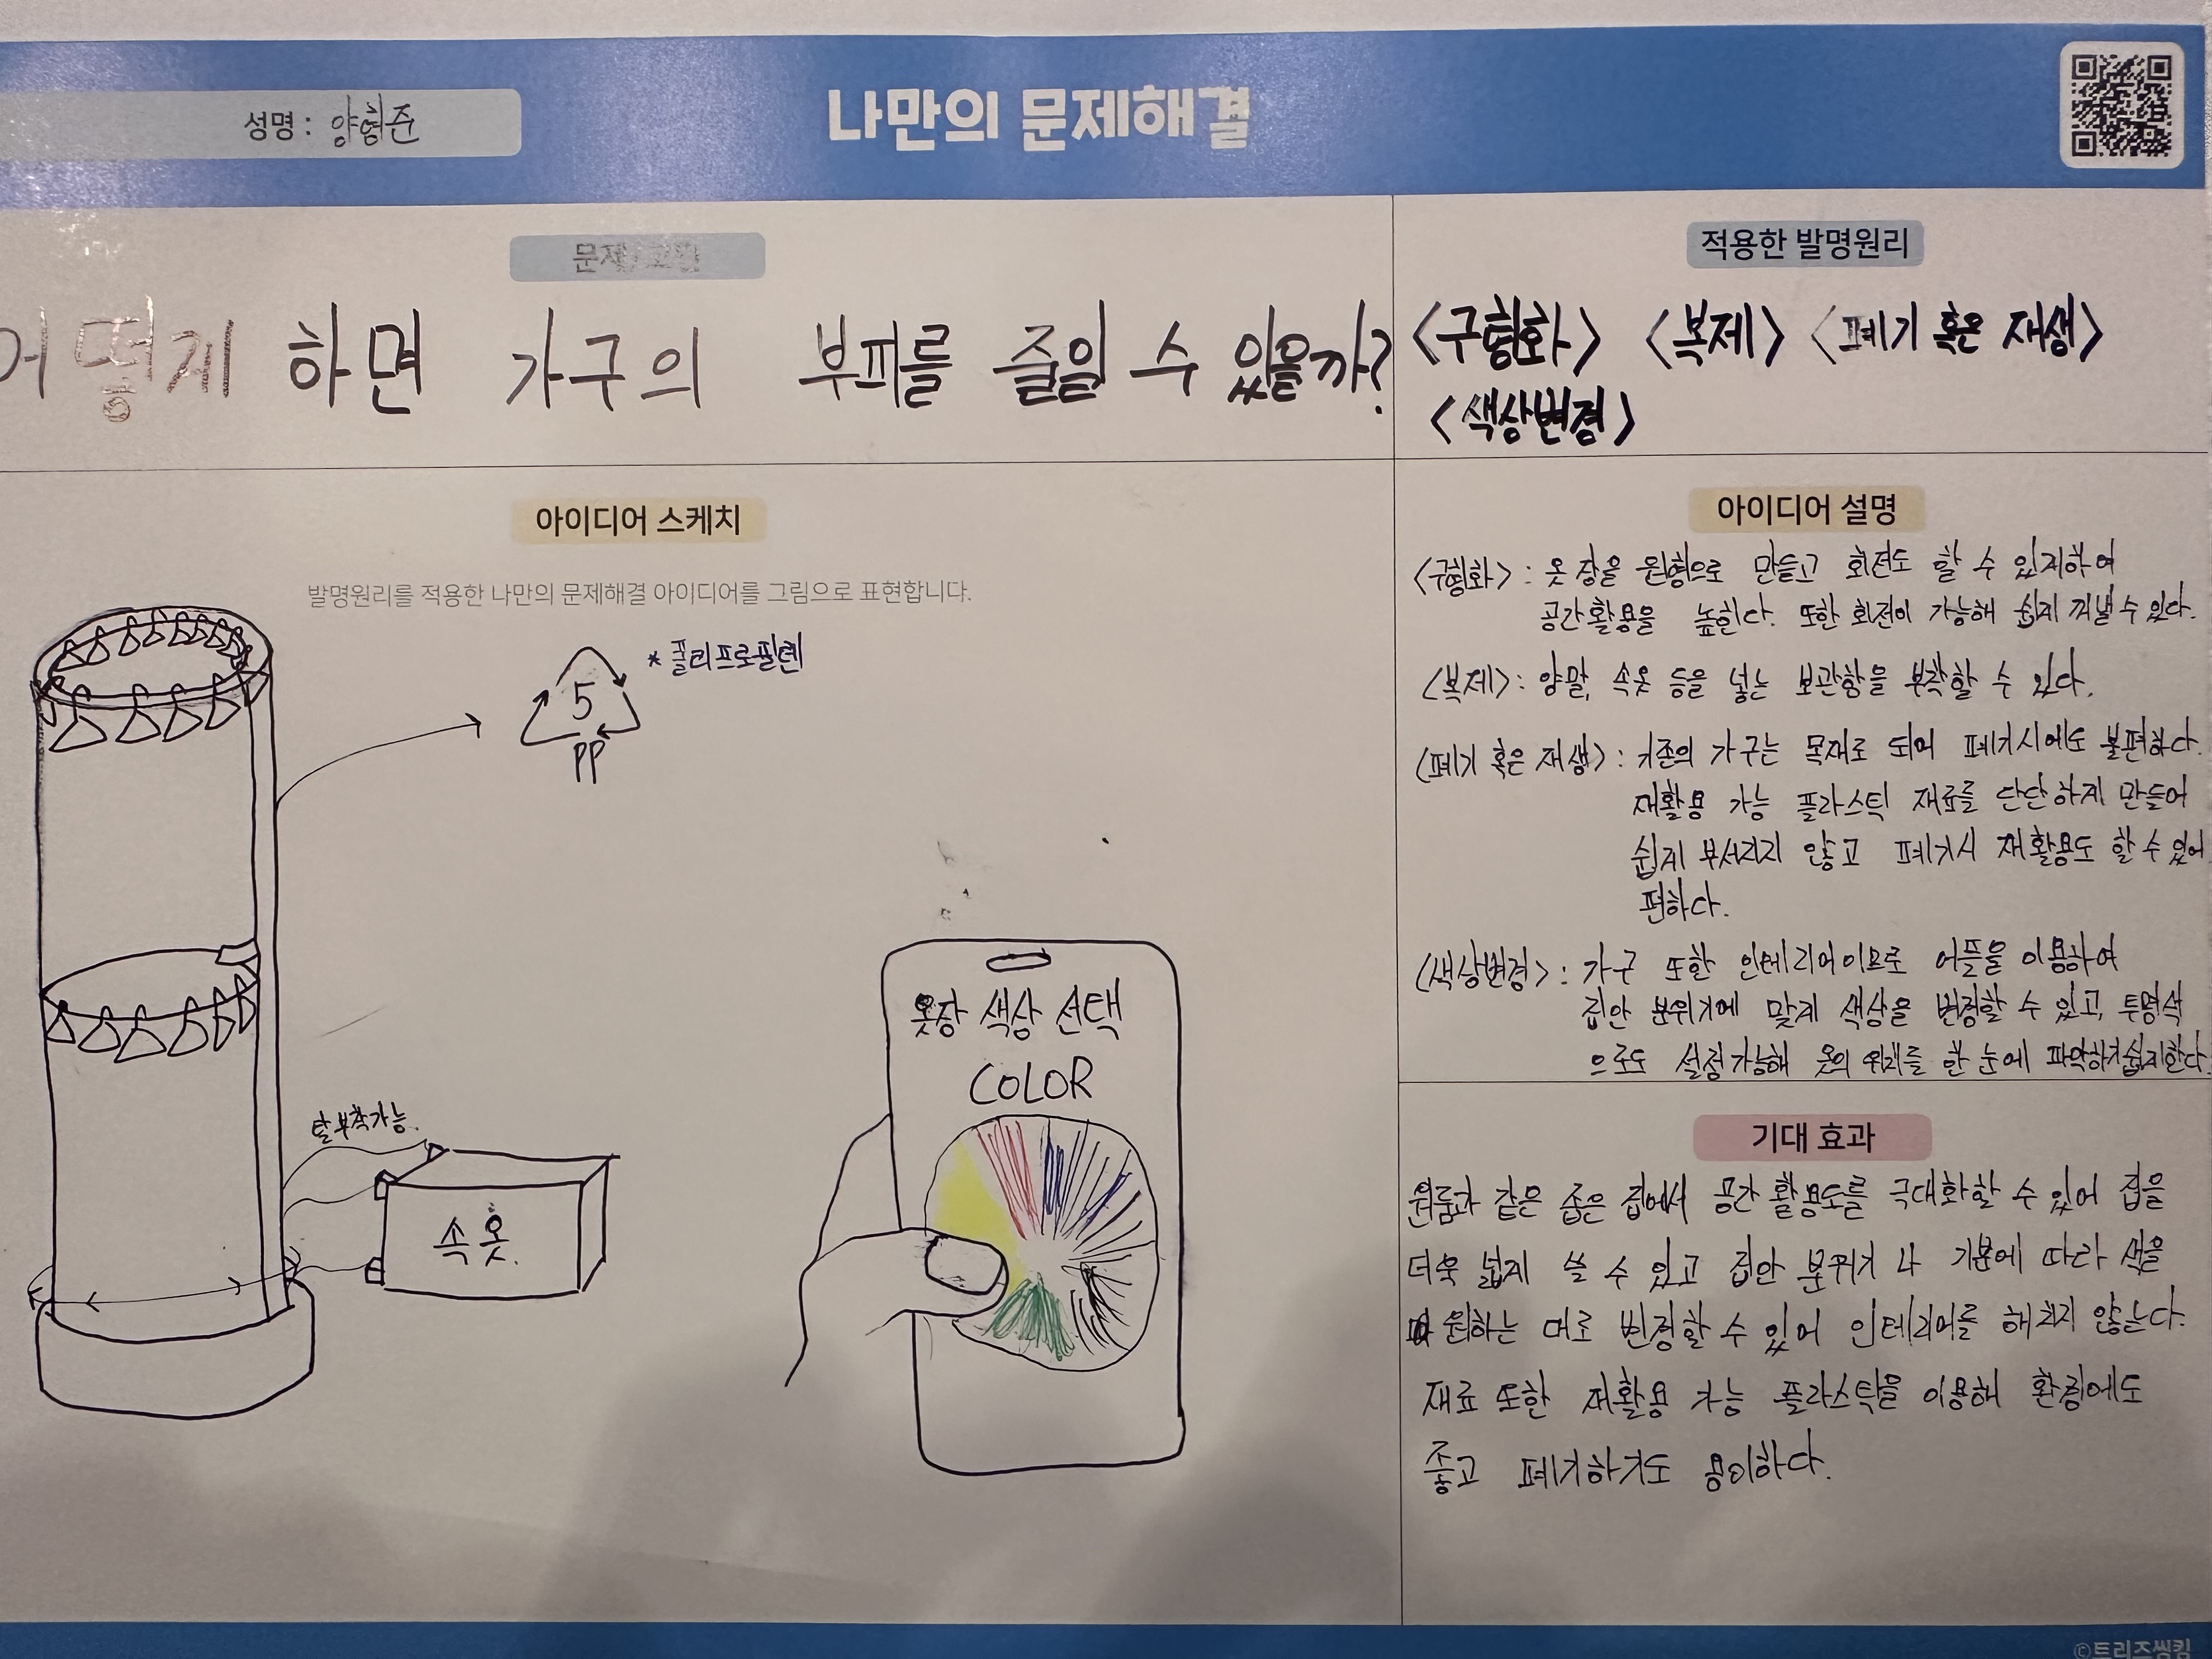 성명 : 양형준
나만의 문제해결
어떻게 하면 가구의 부피를 줄일 수 있을까?
적용한 발명원리
<구형화> <복제> <폐기 혹은 재생>
<색상변경>
아이디어 스케치
발명원리를 적용한 나만의 문제해결 아이디어를 그림으로 표현합니다.
5
PP
* 폴리프로필렌
탈부착가능.
속옷.
옷장 색상 선택
COLOR
아이디어 설명
<구형화> : 옷장을 원형으로 만들고 회전도 할 수 있게하여
공간활용을 높힌다. 또한 회전이 가능해 쉽게 꺼낼 수 있다.
<복제> : 양말, 속옷 등을 넣는 보관함을 부착할 수 있다.
<폐기 혹은 재생> : 기존의 가구는 목재로 되어 폐기시에도 불편하다.
재활용 가능 플라스틱 재료를 단단하게 만들어
쉽게 부서지지 않고 폐기시 재활용도 할 수 있어
편하다.
<색상변경> : 가구 또한 인테리어이므로 어플을 이용하여
집안 분위기에 맞게 색상을 변경할 수 있고, 투명색
으로도 설정가능해 옷의 위치를 한 눈에 파악하기쉽게한다.
기대 효과
원룸과 같은 좁은 집에서 공간 활용도를 극대화할 수 있어 집을
더욱 넓게 쓸 수 있고 집안 분위기 나 기분에 따라 색을
원하는 대로 변경할 수 있어 인테리어를 해치지 않는다.
재료 또한 재활용 가능 플라스틱을 이용해 환경에도
좋고 폐기하기도 용이하다.
©트리즈씽킹